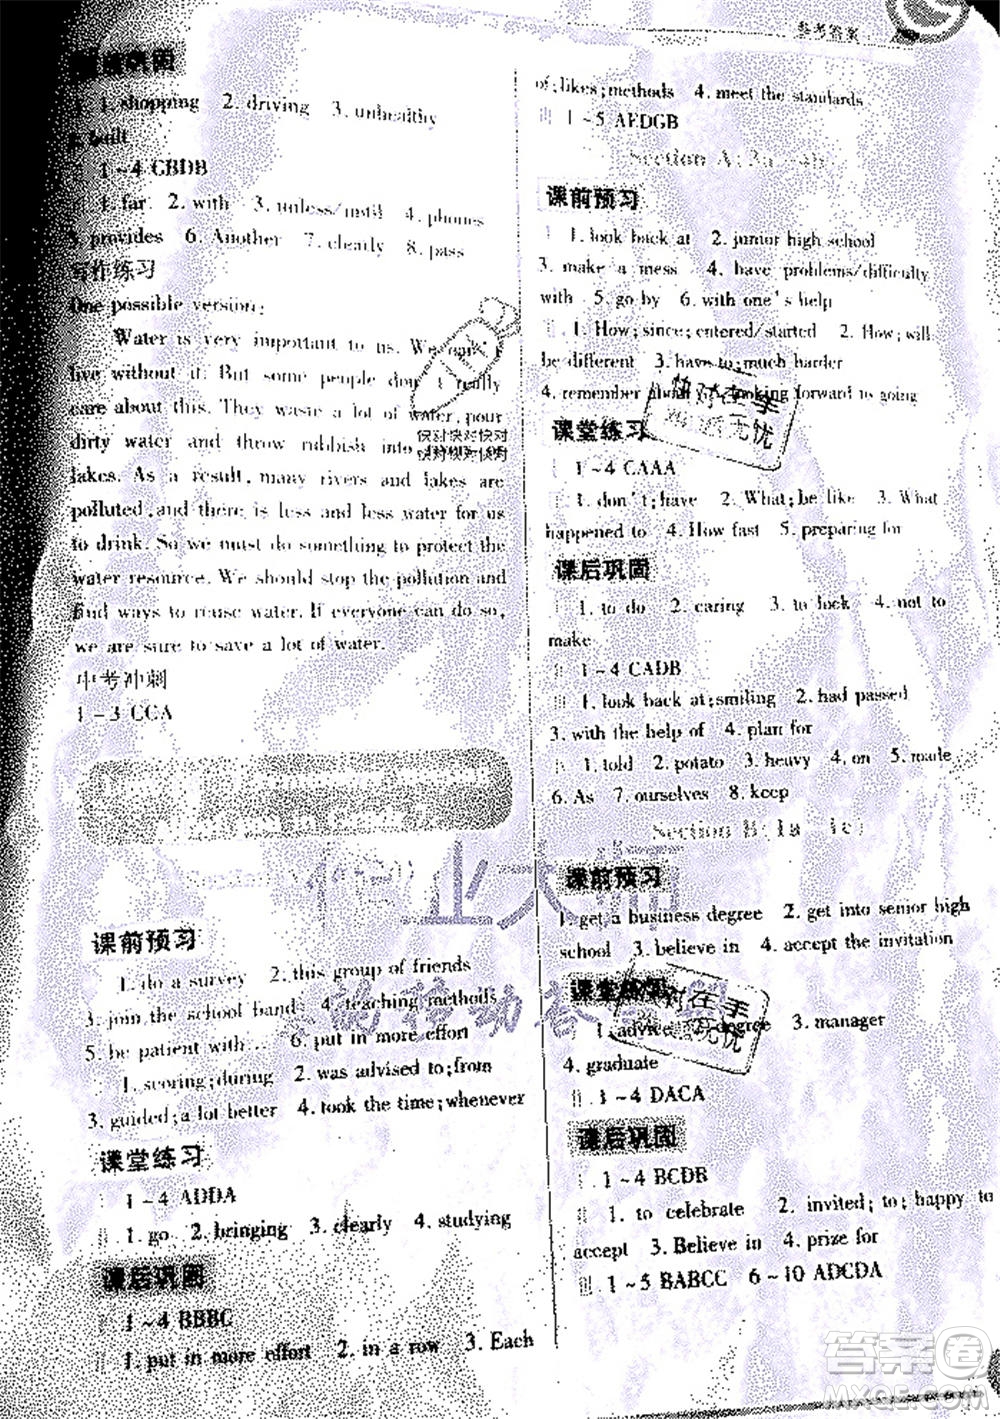 参考答案
巩固
1. shopping 2. driving 3. unhealthy
built
1~4 CBDB
1. far 2. with 3. unless/until 4. phones
5. provides 6. Another 7. clearly 8. pass
写作练习
One possible version:
Water is very important to us. We can't
live without it. But some people don't really
care about this. They waste a lot of water, pour
dirty water and throw rubbish into
lakes. As a result, many rivers and lakes are
polluted, and there is less and less water for us
to drink. So we must do something to protect the
water resource. We should stop the pollution and
find ways to reuse water. If everyone can do so,
we are sure to save a lot of water.
中考冲刺
1~3 CCA
课前预习
1. do a survey 2. this group of friends
3. join the school band 4. teaching methods
5. be patient with... 6. put in more effort
1. scoring; during 2. was advised to; from
3. guided; a lot better 4. took the time; whenever
课堂练习
1~4 ADDA
1. go 2. bringing 3. clearly 4. studying
课后巩固
1~4 BBBC
1. put in more effort 2. in a row 3. Each
of; likes; methods 4. meet the standards
1~5 AFDGB
Section A(3a—4b)
课前预习
1. look back at 2. junior high school
3. make a mess 4. have problems/difficulty
with 5. go by 6. with one's help
1. How; since; entered/started 2. How; will
be different 3. have to; much harder
4. remember about looking forward to going
课堂练习
1~4 CAAA
1. don't; have 2. What; be like 3. What
happened to 4. How fast 5. preparing for
课后巩固
1. to do 2. caring 3. to lock 4. not to
make
1~4 CADB
1. look back at; smiling 2. had passed
3. with the help of 4. plan for
1. told 2. potato 3. heavy 4. on 5. made
6. As 7. ourselves 8. keep
Section B(1a—1e)
课前预习
1. get a business degree 2. get into senior high
school 3. believe in 4. accept the invitation
课堂练习
1. advice 2. degree 3. manager
4. graduate
1~4 DACA
课后巩固
1~4 BCDB
1. to celebrate 2. invited; to; happy to
accept 3. Believe in 4. prize for
1~5 BABCC 6~10 ADCDA
快对快对快对
快对快对快对
作业大师
答案圈
MXQE.COM